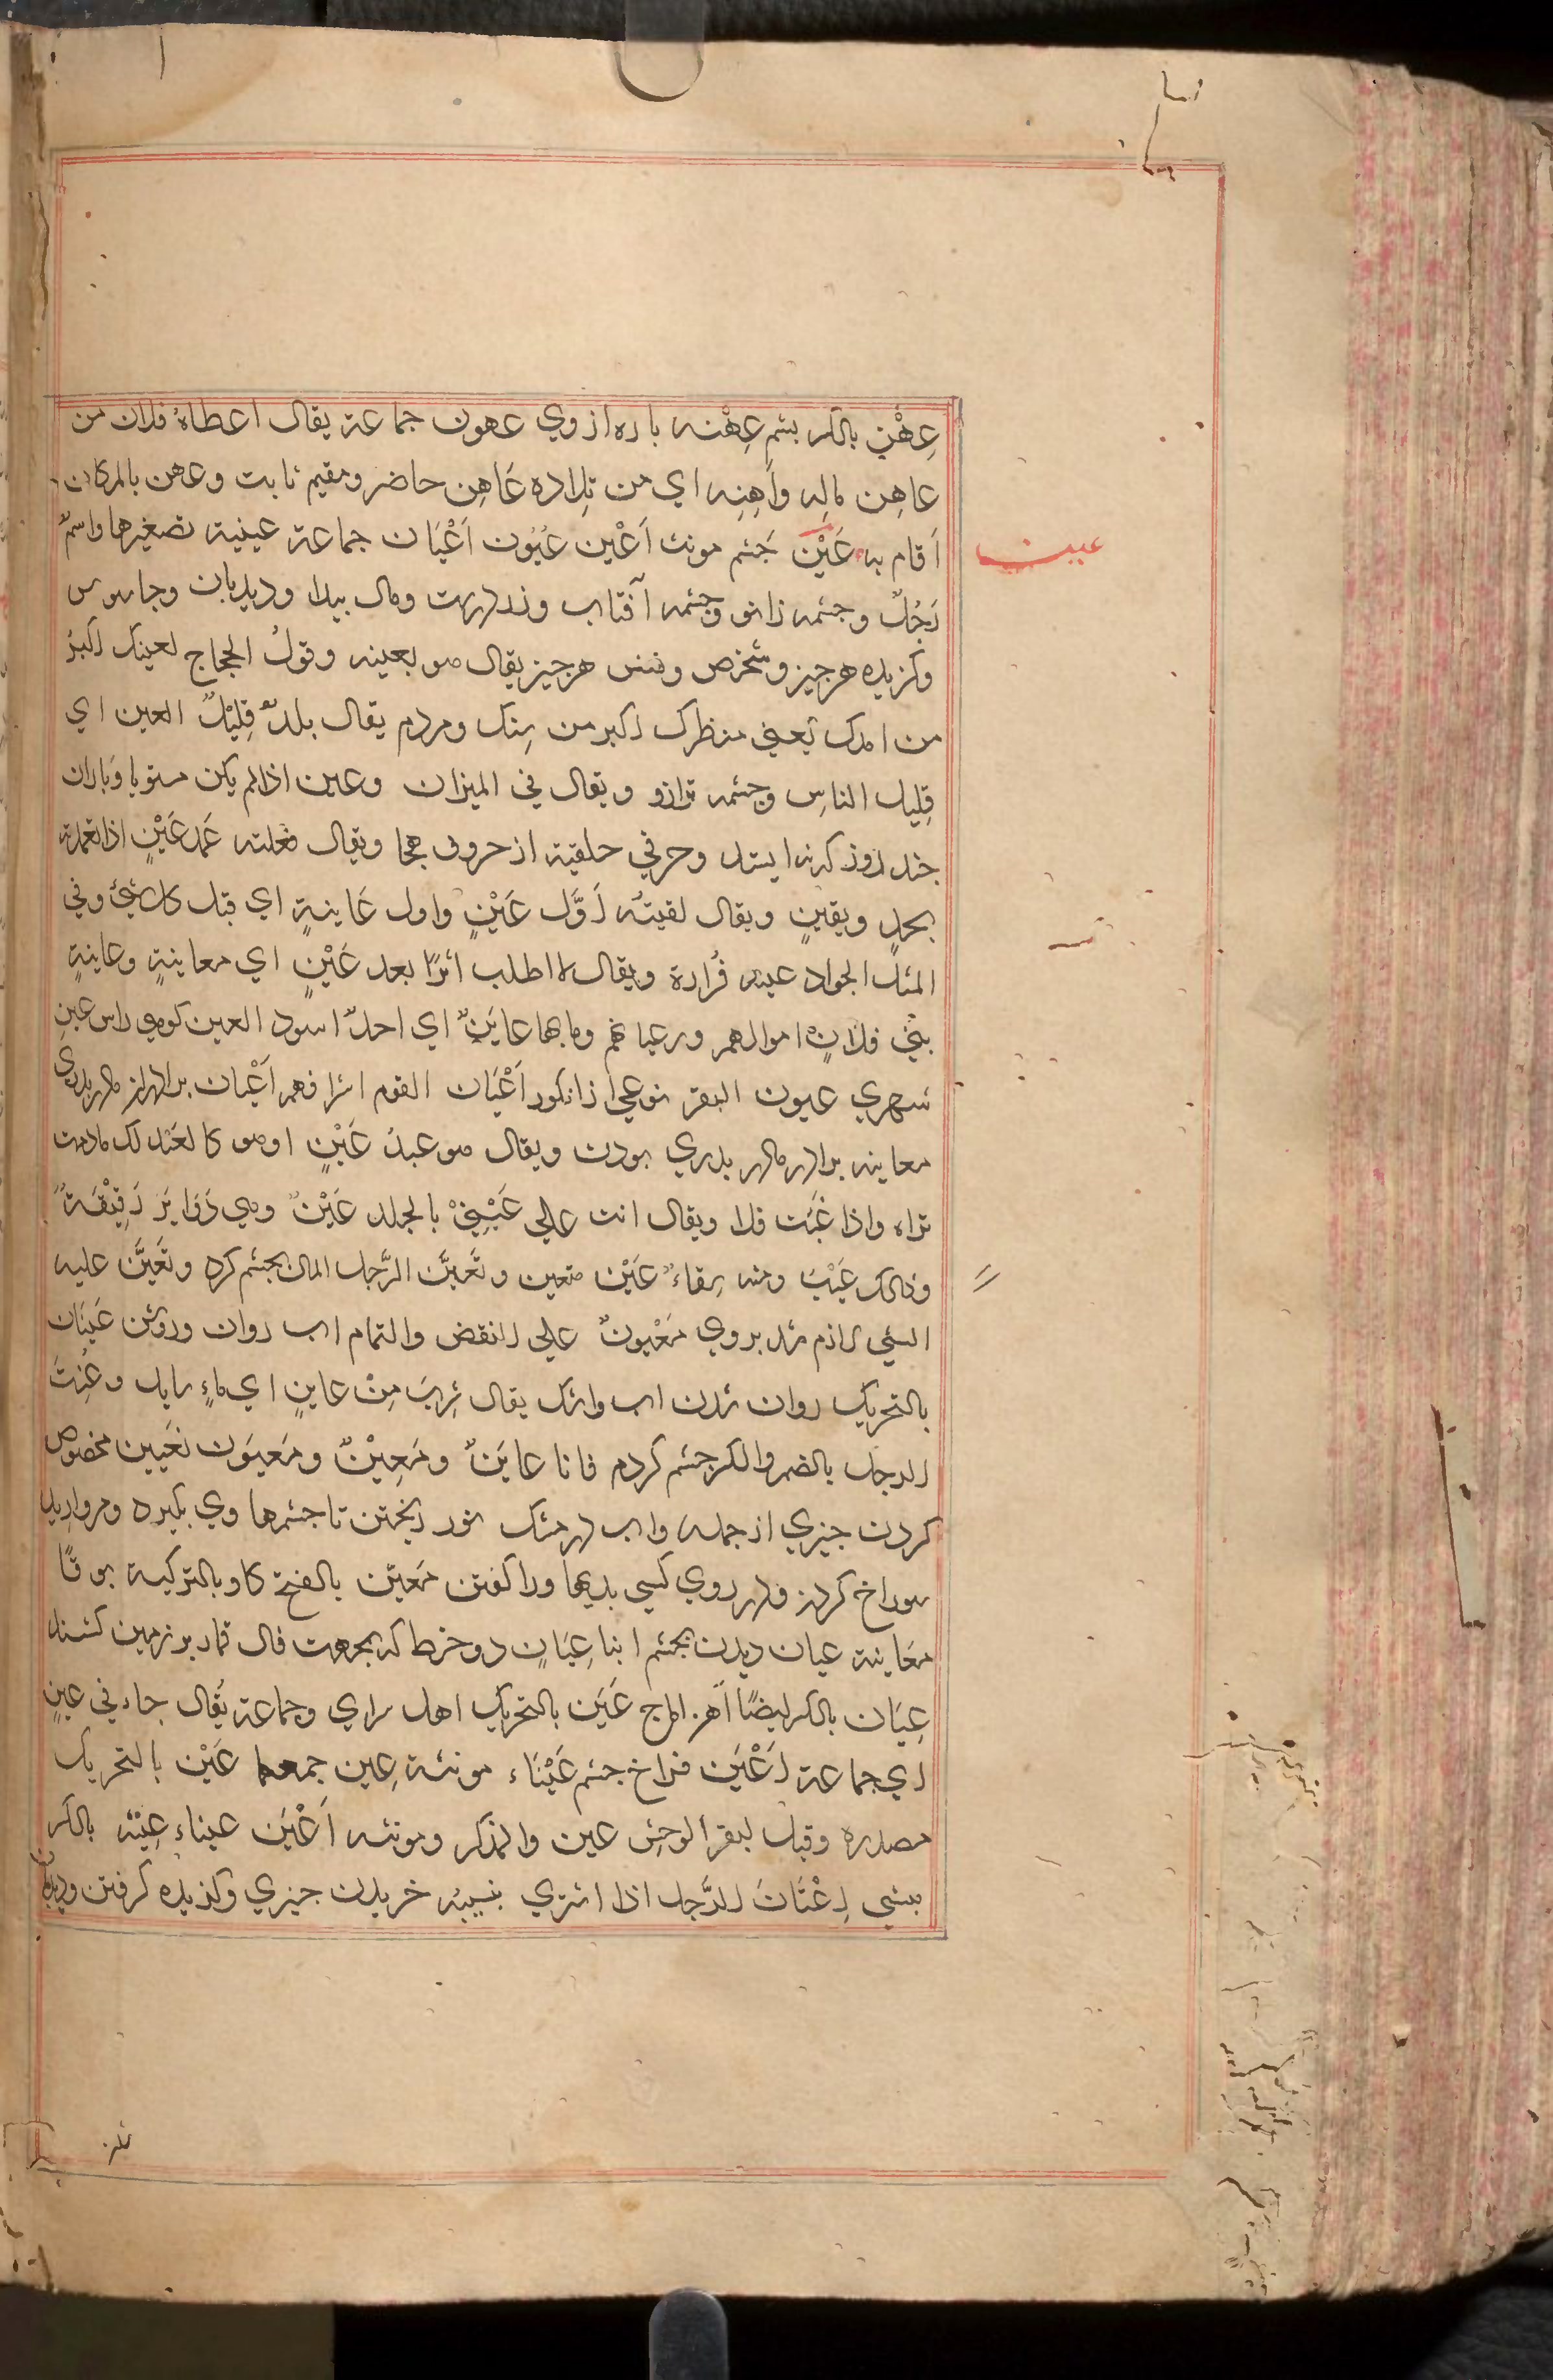 عِهْن بالكسر بشم عِهْنه باره از وي عهون جماعة يقال اعطاهُ فلان من
عاهِن مالِه وآهِنِه اي من تِلاده عَاهِن حاضر ومقيم ثابت وعهن بالمكان
اَقام به عَيْن جَشم مونث اَعْين عُيُون اَعْيَان جماعة عيينة تصغيرها واسمٌ
رَجُلٌ وجشمه زانو وجشمه آفتاب وزر ومال بيدا وديدبان وجاسوس
وكزيده هرجيز وشخص ونفس هرجيز يقال هو بعينه وقولُ الحجاج لعينك اكبرُ
من امدك يَعني منظرك اكبر من سنك ومردم يقال بلدٌ قِليْلٌ العين اي
قِليل الناسِ وجشمه ترازو ويقال في الميزان وعين اذا لم يكن مستويا وَباران
جند روز كه نه ايستد وحرفي حلقية از حروف هجا ويقال فعلته عَمد عَيْنٍ اذا تعمدته
بجدٍ ويقينٍ ويقال لقيتُه اَوَّل عَيْنٍ واول عَاينةٍ اي قبل كل شئ وفي
المثل الجواد عينه فُراره ويقال لا اطلب اثرًا بعد عَيْنٍ اي معاينةٍ وعاينةٍ
بَني فلانٍ اموالهم ورعيانهم وما بها عايَنٌ اي احدٌ اسود العين كوهي راس عينٍ
شهري عيون البقر نوعي از انكور اَعْيَان القوم اشرافهم اَعْيان برادران
معاينه برادر مادر بدري بودن ويقال هو عبدُ عَيْنٍ اوهو كالعَبْد لك مادمت
تراه واذا غَبْت فلا ويقال انت علي عَيْنِيْ بالجلد عَيْنٌ وهي دَوَايَر رَقِيْقَةٌ
وذلك عَيْبٌ ومنه سِقاءٌ عَيْن متعين وتَعيَّن الرَّجل المال بجشم كرد وتَعَيَّن عليه
الشي لازم شد بر وي مَعْيونٌ علي النقض والتمام اب روان وروشن عَيَنَان
بالتحريك روان شدن اب واشك يقال شرِبَ مِنْ عاينٍ اي ماءٍ سايل وعِنتُ
الرجل بالضم والكسر جشم كردم فانا عايَنٌ ومَعِيْنٌ ومَعيَون تعَيين مخصوص
كردن جيزي از جمله واب در مشك نو ريختن تا جشمها وي بكيرد ومرواريد
سوراخ كردن ودر روي كسي بديها ورا كفتن مَعيَّن بالفتح كاو بالتركية بوقا
معَاينة عيان ديدن بجشم ابنا عِيَانٍ دو خط كه بجهت فال بر زمين كشند
عِيَان بالكسر ايضًا آهن اماج عَيَن بالتحريك اهل سراي وجماعة يُقال جاء في عينٍ
اي جماعة اَعْيَن فراخ جشم عَيْنَاء مونثة عِين جمعها عَيْن بالتحريك
مصدره وقيل لبقر الوحِش عين والمذكر ومونثه اَعْيَن عيناء عِيْنَه بالكسر
بيشي اِعْتَانَ الرَّجل اذا اشتري بنسيئه خريدن جيزي وكذيده كرفتن
عين